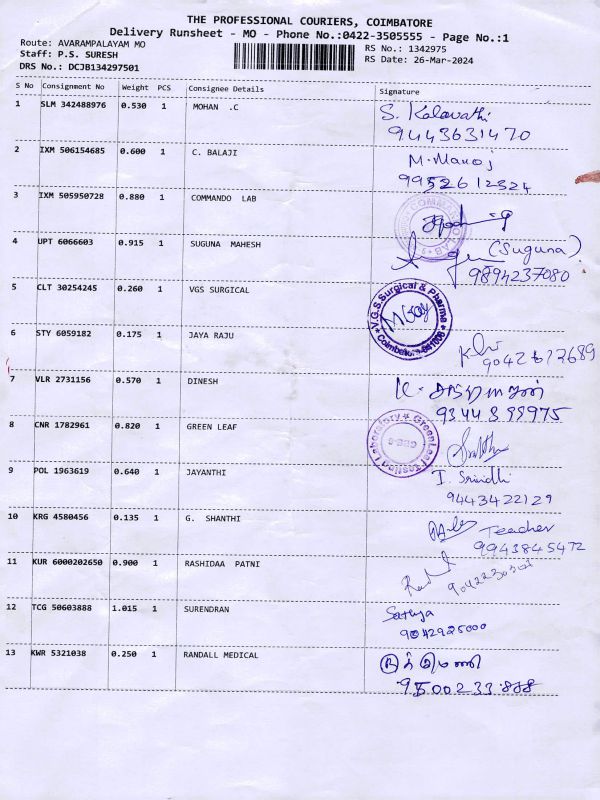 THE PROFESSIONAL COURIERS, COIMBATORE
Delivery Runsheet - MO - Phone No.:0422-3505555 - Page No.:1
Route: AVARAMPALAYAM MO
Staff: P.S. SURESH
DRS No.: DCJB134297501
RS No.: 1342975
RS Date: 26-Mar-2024
S No Consignment No Weight PCS Consignee Details Signature
1 SLM 342488976 0.530 1 MOHAN .C S. Kalavathi
9443631470
2 IXM 506154685 0.600 1 C. BALAJI M. Manoj
9952612324
3 IXM 505950728 0.880 1 COMMANDO LAB
4 UPT 6066603 0.915 1 SUGUNA MAHESH (Suguna)
9894237080
5 CLT 30254245 0.260 1 VGS SURGICAL V.G.S.Surgical & Pharma
6 STY 6059182 0.175 1 JAYA RAJU
7 VLR 2731156 0.570 1 DINESH
9344899975
8 CNR 1782961 0.820 1 GREEN LEAF
9 POL 1963619 0.640 1 JAYANTHI I. Srividhi
9443422129
10 KRG 4580456 0.135 1 G. SHANTHI Teacher
9943845472
11 KUR 6000202650 0.900 1 RASHIDAA PATNI
12 TCG 50603888 1.015 1 SURENDRAN Sathya
9042925000
13 KWR 5321038 0.250 1 RANDALL MEDICAL